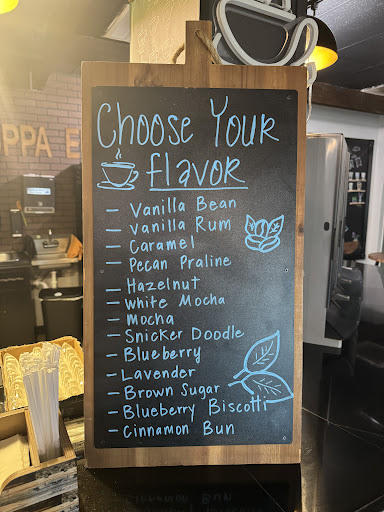 OPPA E
Choose Your
flavor
– Vanilla Bean
– Vanilla Rum
– Caramel
– Pecan Praline
– Hazelnut
– White Mocha
– Mocha
– Snicker Doodle
– Blueberry
– Lavender
– Brown Sugar
– Blueberry Biscotti
– Cinnamon Bun